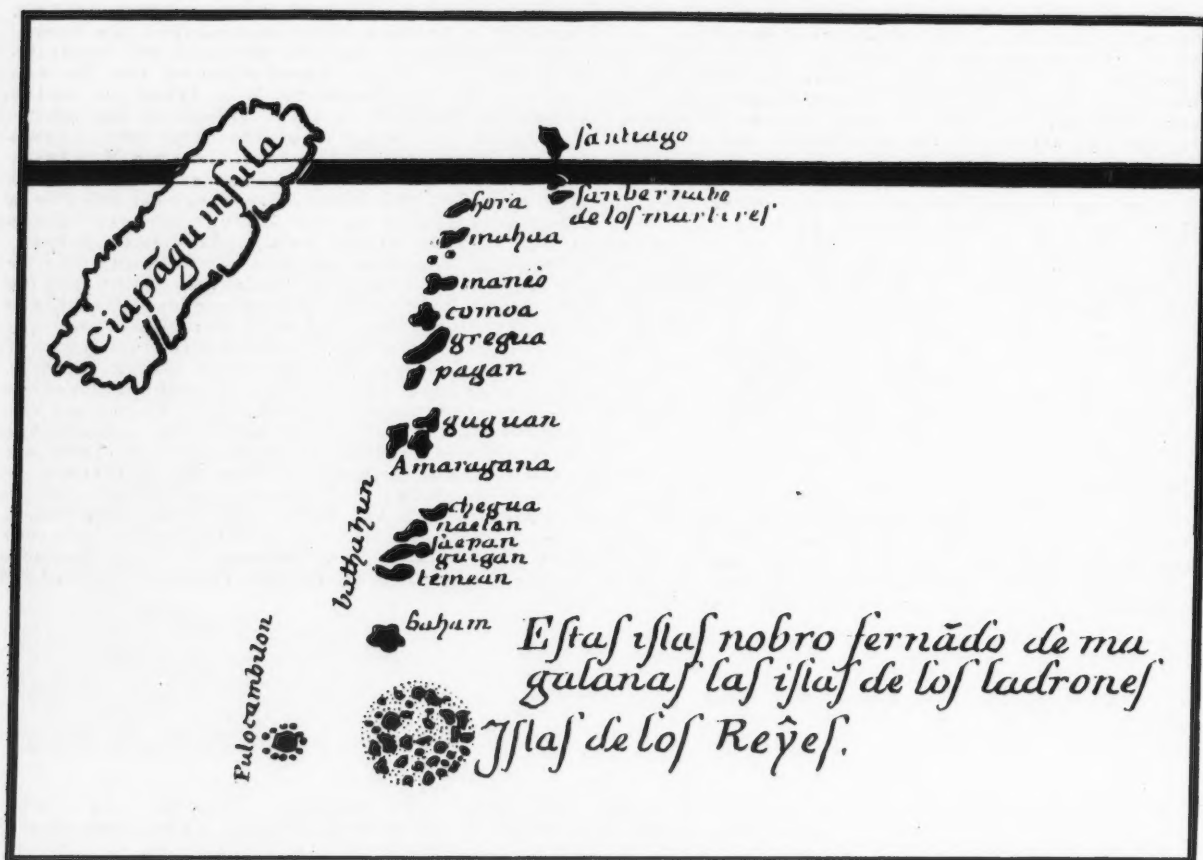 Ciapãgu inſula
ſantiago
ſanbernabe
de loſ martireſ
hora
mahaa
maneo
comoa
gregua
pagan
guguan
Amaragana
chegua
naelan
ſaepan
guigan
temean
bathahun
baham
Pulocambilon
Eſtaſ iſlaſ nobro fernãdo de ma
galanaſ laſ iſlaſ de loſ ladroneſ
Jſlaſ de loſ Reŷeſ.